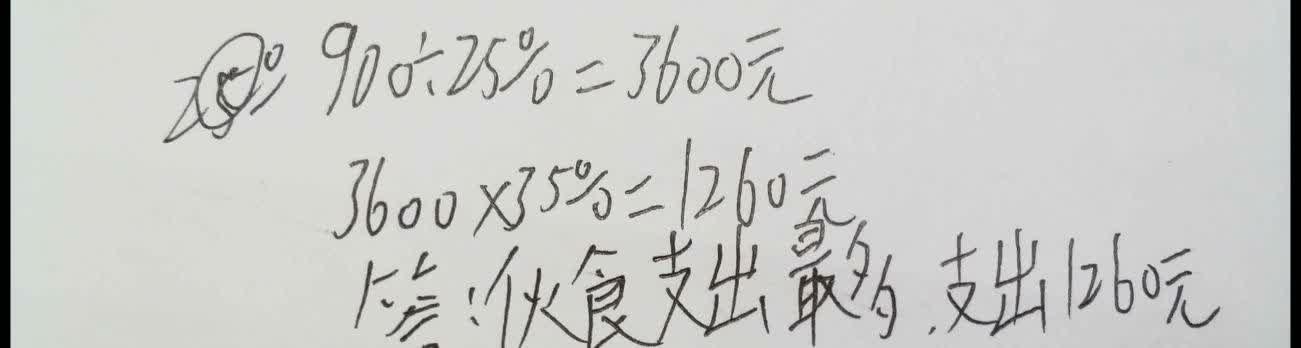 900÷25%=3600元
3600×35%=1260元
答:伙食支出最多.支出1260元